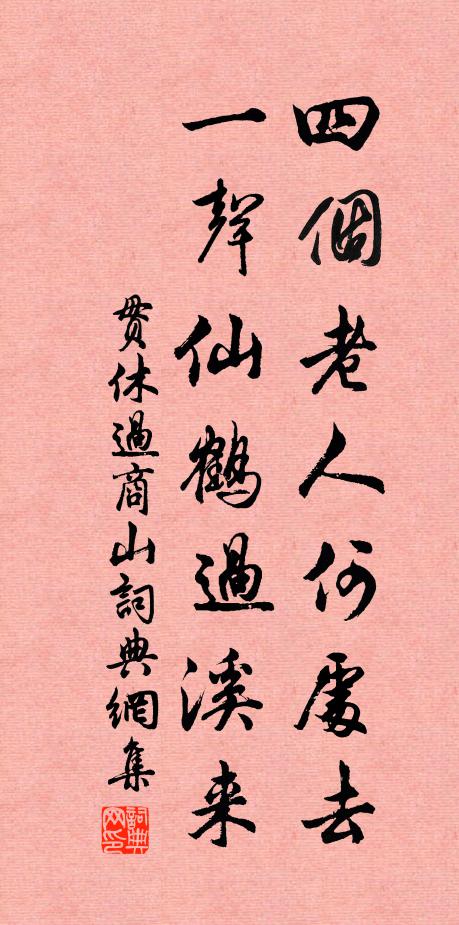 四個老人何處去
一聲仙鶴過溪来
貫休過商山詞典網集
詞典网印